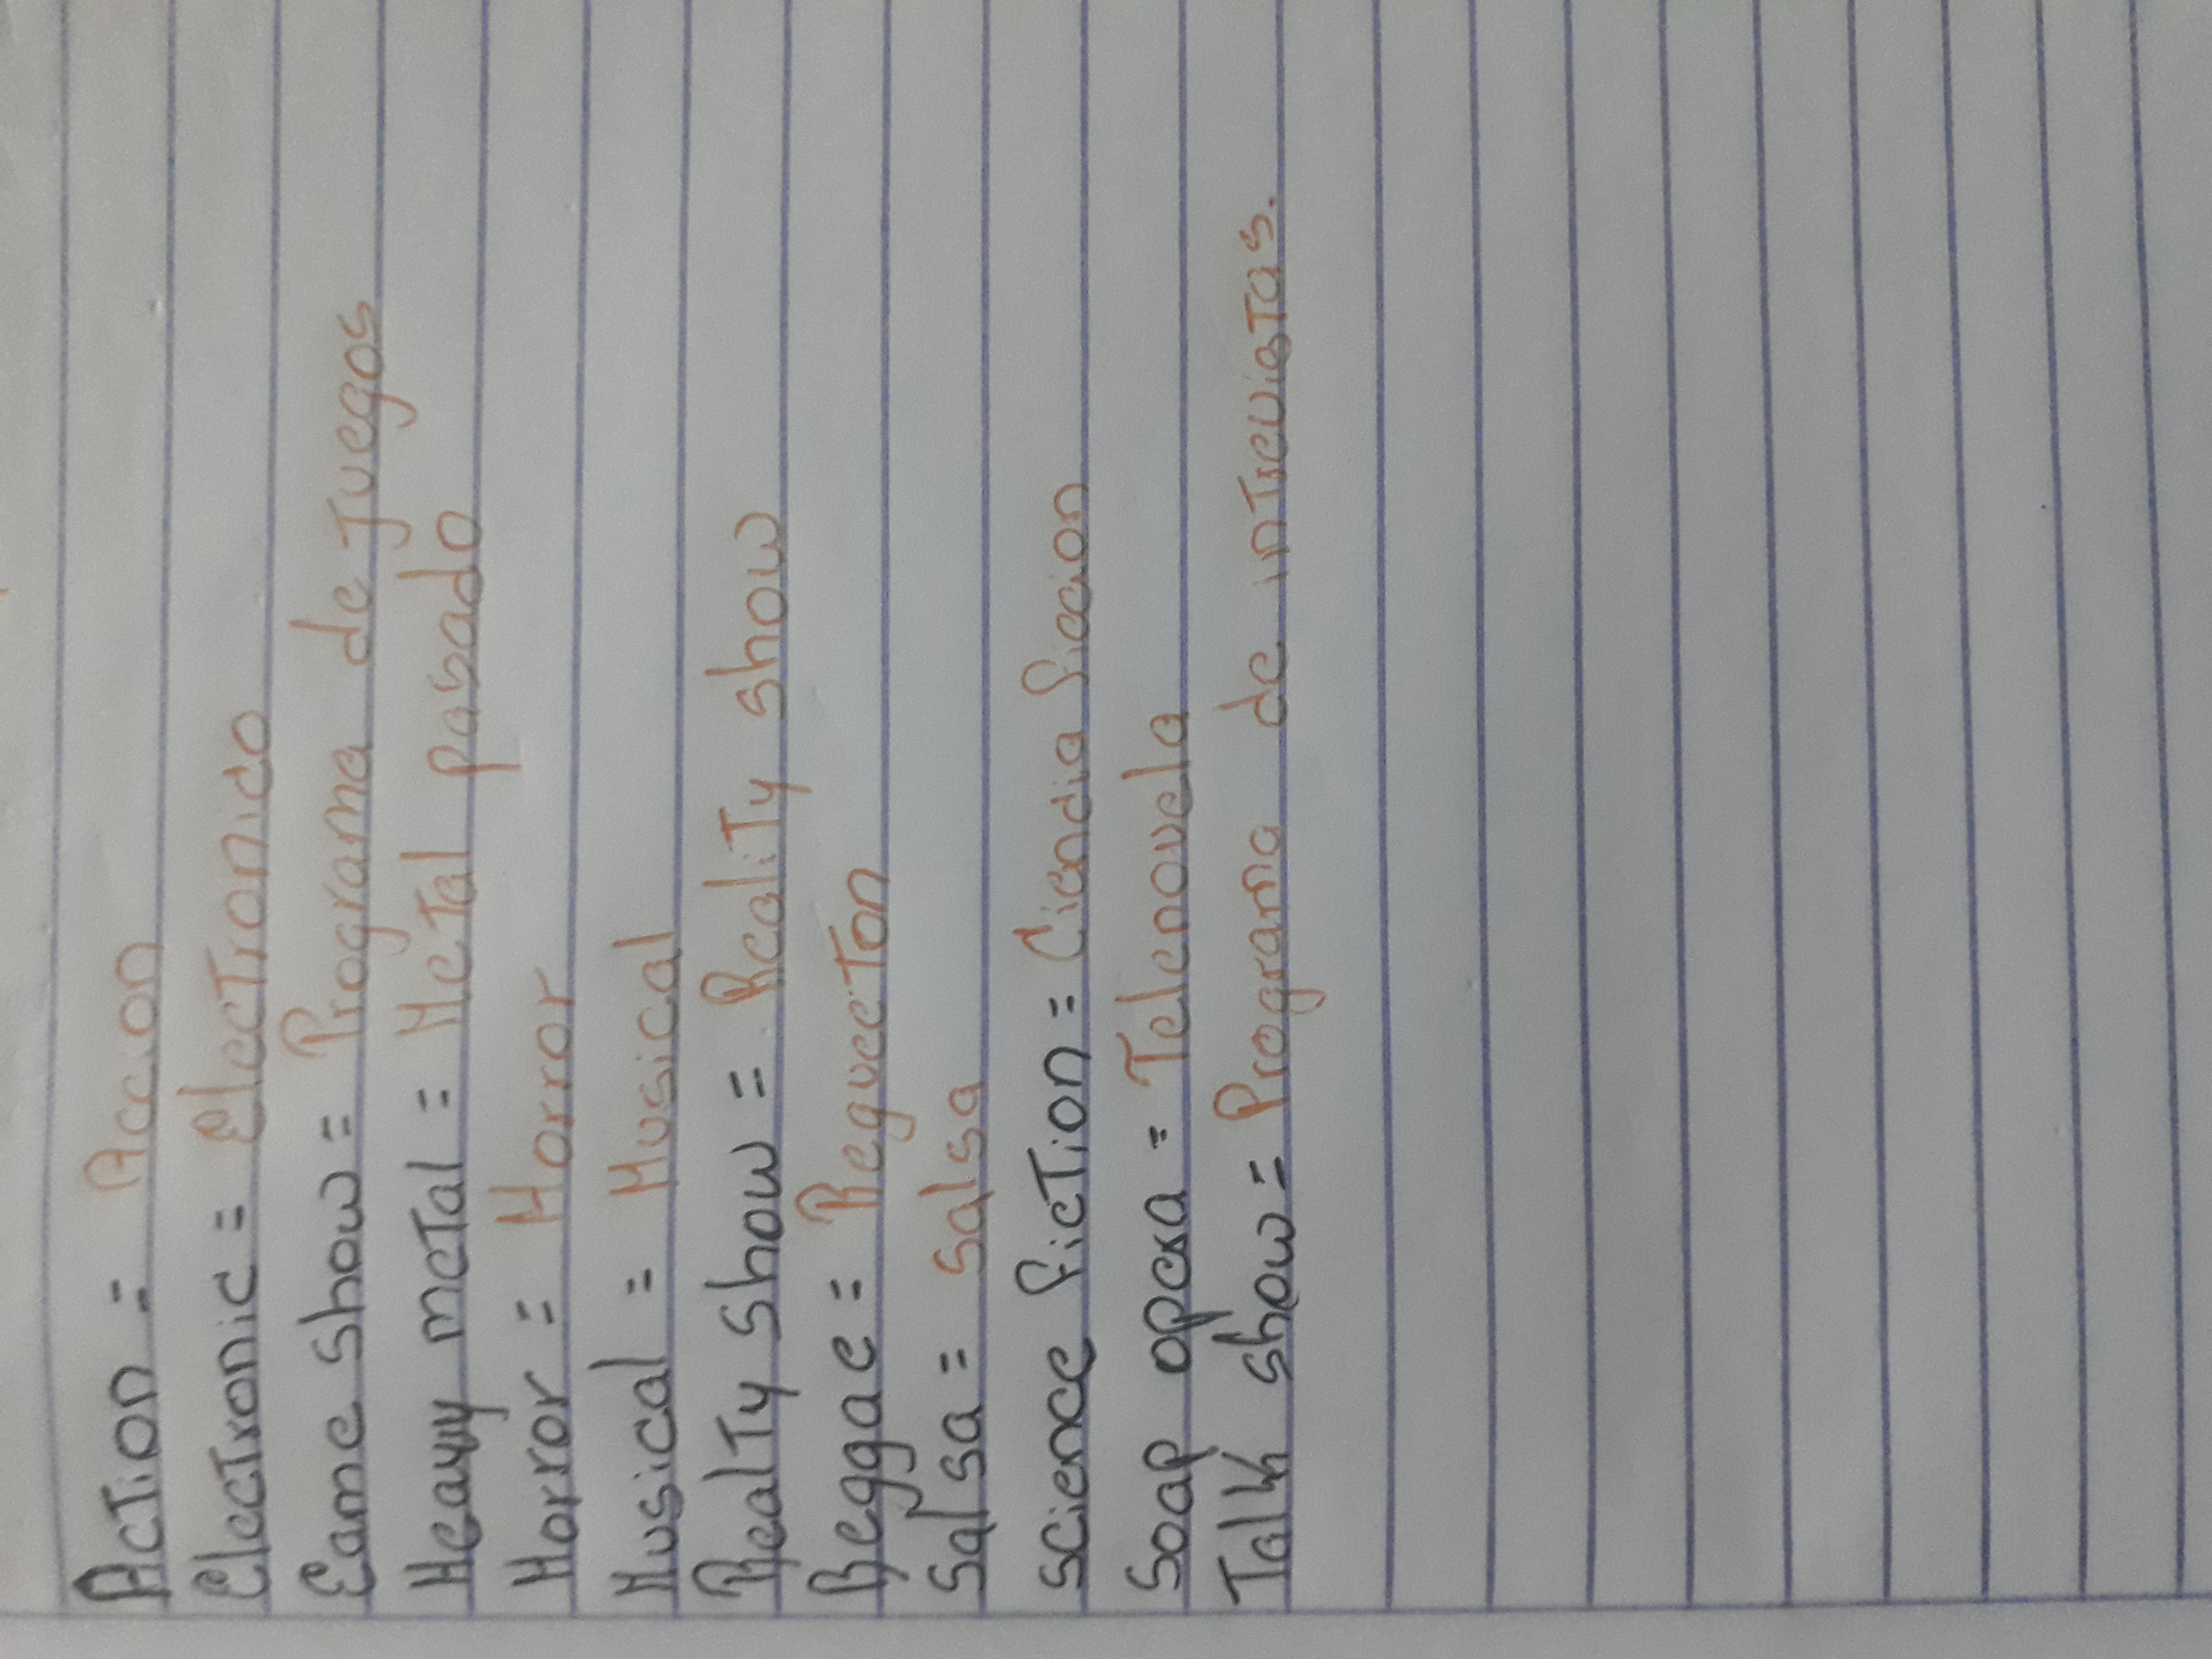 Action = Accion
Electronic = Electronico
Eame show = Programa de Juegos
Heavy metal = Metal pasado
Horror = Horror
Musical = Musical
Realty show = Reality show
Reggae = Regueeton
Salsa = salsa
science fiction = Ciencia ficcion
Soap opera = Telenovela
Talk show = Programa de intreviatas.